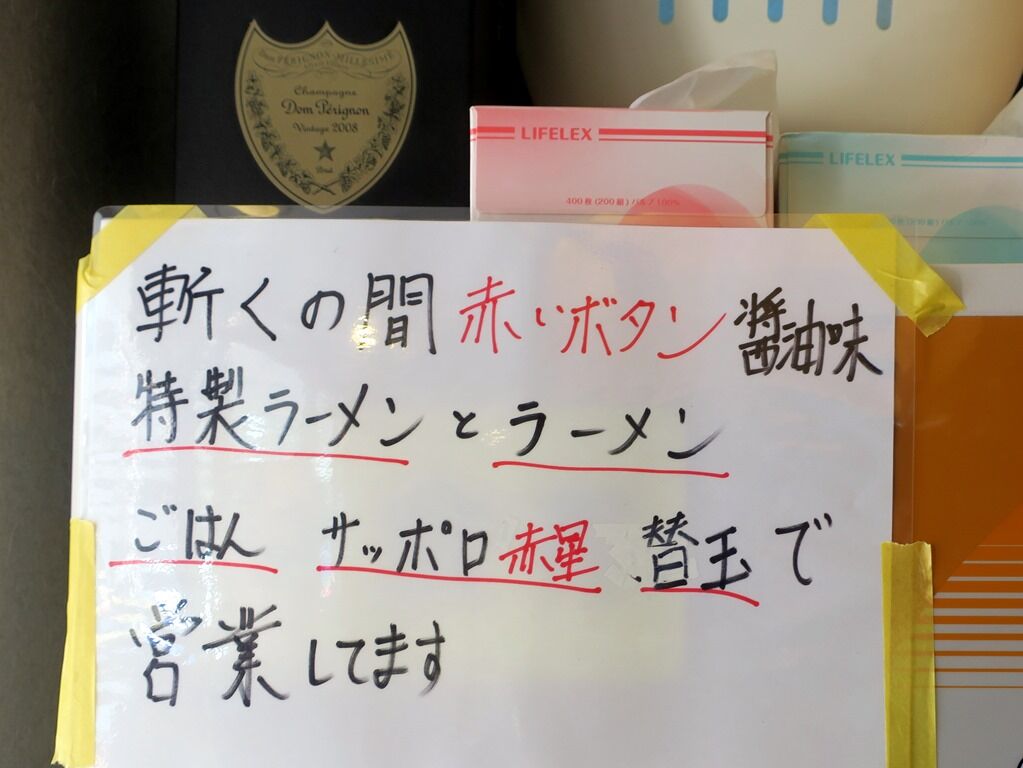 DOM PÉRIGNON-MILLÉSIME
Champagne
Dom Pérignon
Vintage 2008
Brut
LIFELEX
400枚(200組)パルプ100%
LIFELEX
斬くの間 赤いボタン 醬油味
特製ラーメンとラーメン
ごはん サッポロ赤星、替玉で
営業してます